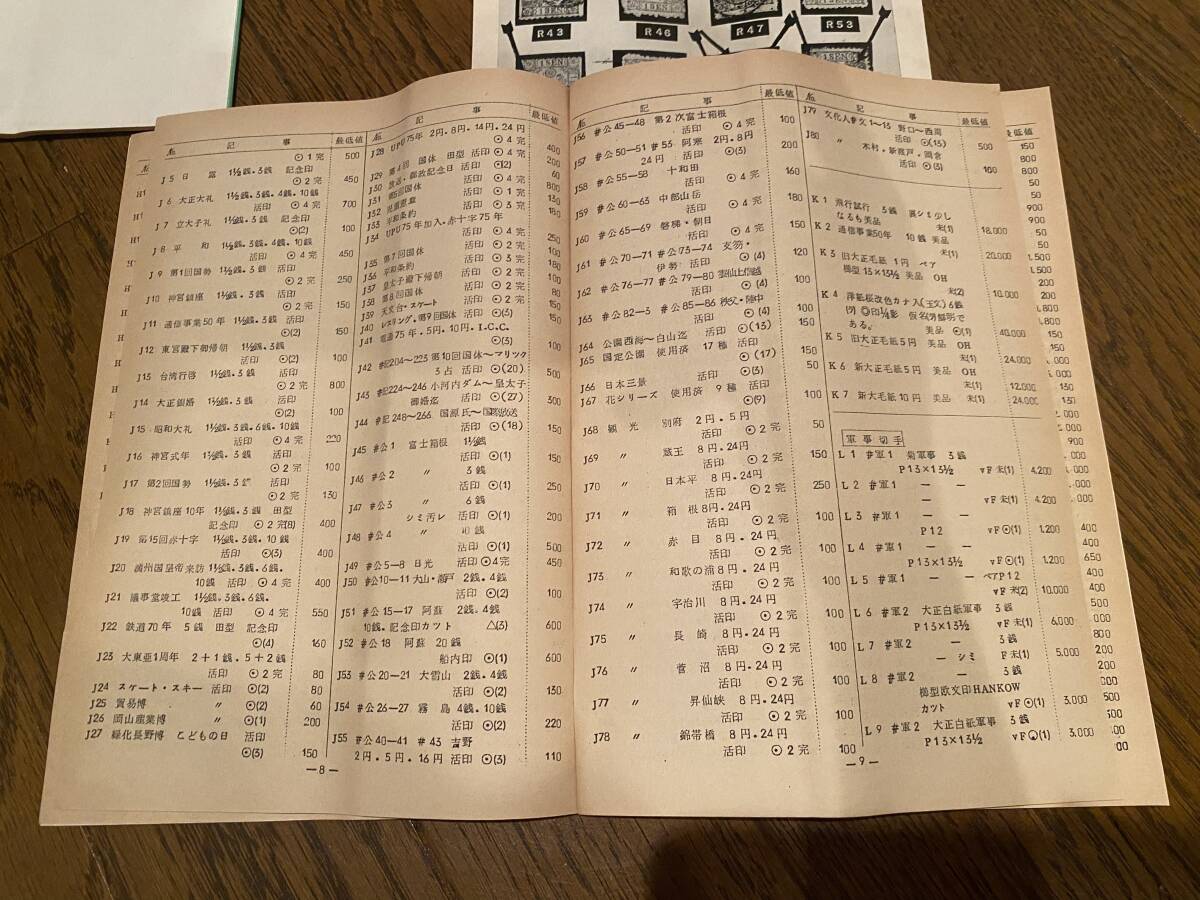 R43
R46
R47
R53
記 事
最低値
⊙1完 500
J5 日露 1½銭.3銭 記念印
⊙2完 450
J6 大正大礼 1½銭.3銭.4銭.10銭
活印 ⊙4完 700
J7 立太子礼 1½銭.3銭 記念印
⊙(2) 100
J8 平和 1½銭.3銭.4銭.10銭
活印 ⊙4完 450
J9 第1回国勢 1½銭.3銭 活印
⊙2完 250
J10 神宮鎮座 1½銭.3銭 活印
⊙2完 150
J11 通信事業50年 1½銭.3銭 活印
⊙(2) 150
J12 東宮殿下御帰朝 1½銭.3銭
活印 ⊙(2) 100
J13 台湾行啓 1½銭.3銭 活印
⊙2完 800
J14 大正銀婚 1½銭.3銭 活印
⊙(2) 100
J15 昭和大礼 1½銭.3銭.6銭.10銭
活印 ⊙4完 220
J16 神宮式年 1½銭.3銭 活印
⊙2完 100
J17 第2回国勢 1½銭.3銭 活印
⊙2完 130
J18 神宮鎮座10年 1½銭.3銭 田型
記念印 ⊙2完(8) 400
J19 第15回赤十字 1½銭.3銭.10銭
活印 ⊙(3) 400
J20 満州国皇帝来訪 1½銭.3銭.6銭.
10銭 活印 ⊙4完 400
J21 議事堂竣工 1½銭.3銭.6銭.
10銭 活印 ⊙4完 550
J22 鉄道70年 5銭 田型 記念印
⊙(4) 160
J23 大東亜1周年 2+1銭.5+2銭
活印 ⊙2完 80
J24 スケート・スキー 活印 ⊙(2) 80
J25 貿易博 〃 ⊙(2) 60
J26 岡山産業博 〃 ⊙(1) 200
J27 緑化長野博 こどもの日 活印
⊙(3) 150
―8―
記 事
最低値
J28 UPU75年 2円.8円.14円.24円
⊙4完 400
J29 第4回 国体 田型 活印 ⊙4完 200
J30 放送・郵政記念日 活印 ⊙(2) 60
J31 第5回国体 ⊙4完 800
J32 児童憲章 活印 ⊙1完 130
J33 平和条約 活印 ⊙3完 180
J34 UPU75年加入.赤十字75年
活印 ⊙4完 250
J35 第7回国体 活印 ⊙2完 100
J36 平和条約 活印 ⊙3完 180
J37 皇太子殿下帰朝 活印 ⊙2完 100
J38 第8回国体 活印 ⊙2完
J39 天文台・スケート 活印 ⊙2完 150
J40 レスリング.第9回国体 活印 ⊙(3) 150
J41 電通75年.5円.10円.I.C.C.
⊙(3) 100
J42 #記204~223 第10回国体~マリック
3占 活印 ⊙(20) 500
J43 #記224~246 小河内ダム~皇太子
御婚迄 活印 ⊙(27) 300
J44 #記248~266 国源氏~国際放送
活印 ⊙(18) 150
J45 #公1 富士箱根 1½銭
活印 ⊙(1) 150
J46 #公2 〃 3銭
活印 ⊙(1) 250
J47 #公3 〃 6銭
シミ汚レ 活印 ⊙(1) 200
J48 #公4 〃 10銭
活印 ⊙(1) 500
J49 #公5-8 日光 活印 ⊙4完 450
J50 #公10-11 大山・瀬戸 2銭.4銭
活印 ⊙(2) 100
J51 #公15-17 阿蘇 2銭.4銭
10銭.記念印カット △(3) 600
J52 #公18 阿蘇 20銭
船内印 ⊙(1) 600
J53 #公20-21 大雪山 2銭.4銭
活印 ⊙(2) 130
J54 #公26-27 霧島 4銭.10銭
活印 ⊙(2) 220
J55 #公40-41 #43 吉野
2円.5円.16円 活印 ⊙(3) 110
記 事
最低値
J56 #公45-48 第2次富士箱根
活印 ⊙4完 100
J57 #公50-51 #53 阿寒 2円.8円
24円 活印 ⊙(3) 200
J58 #公55-58 十和田
活印 ⊙4完 160
J59 #公60-63 中部山岳
活印 ⊙4完 180
J60 #公65-69 磐梯・朝日
活印 ⊙4完 190
J61 #公70-71 #公73-74 支笏・
伊勢 活印 ⊙(4) 120
J62 #公76-77 #公79-80 雲仙.上信越
活印 ⊙(4) 100
J63 #公82-3 #公85-86 秩父・陸中
活印 ⊙(4) 100
J64 公園西海~白山迄 ⊙(13) 150
J65 国定公園 使用済 17種 活印
⊙(17) 150
J66 日本三景 活印 ⊙(3) 50
J67 花シリーズ 使用済 9種 活印
⊙(9) 100
J68 観光 別府 2円.5円
活印 ⊙2完 50
J69 〃 蔵王 8円.24円
活印 ⊙2完 150
J70 〃 日本平 8円.24円
活印 ⊙2完 250
J71 〃 箱根 8円.24円
活印 ⊙2完 100
J72 〃 赤目 8円.24円
活印 ⊙2完 100
J73 〃 和歌の浦 8円.24円
活印 ⊙2完 100
J74 〃 宇治川 8円.24円
活印 ⊙2完 100
J75 〃 長崎 8円.24円
活印 ⊙2完 100
J76 〃 菅沼 8円.24円
活印 ⊙2完 100
J77 〃 昇仙峡 8円.24円
活印 ⊙2完 100
J78 〃 錦帯橋 8円.24円
活印 ⊙2完 100
―9―
記 事
最低値
J79 文化人#文1~15 野口~西周
活印 ⊙(15) 500
J80 〃 木村・新渡戸・岡倉
活印 ⊙(3) 100
K1 飛行試行 3銭 裏シミ少し
なるも美品 未(1) 18.000
K2 通信事業50年 10銭 美品
未(1) 20.000
K3 旧大正毛紙 1円 ペア
櫛型 13×13½ 美品 OH
未(2) 10.000
K4 洋紙桜改色カナ入(王欠) 6銭
(ヲ) ◎印¼影 仮名(ヲ)鮮明で
ある。 美品 ⊙(1) 40.000
K5 旧大正毛紙5円 美品 OH
未(1) 24.000
K6 新大正毛紙5円 美品 OH
未(1) 12.000
K7 新大毛紙10円 美品 未(1) 24.000
軍事切手
L1 #軍1 菊軍事 3銭
P13×13½ vF 未(1) 4.200
L2 #軍1 ― ―
― vF 未(1) 4.200
L3 #軍1 ― ―
P12 vF⊙(1) 1.200
L4 #軍1 ― ―
P13×13½ vF⊙(1) 1.200
L5 #軍1 ― ― ペアP12
vF 未(2) 10.000
L6 #軍2 大正白紙軍事 3銭
P13×13½ vF 未(1) 6.000
L7 #軍2 ― 3銭
― シミ F 未(1) 5.000
L8 #軍2 ― 3銭
櫛型欧文印HANKOW
カット vF⊙(1) 3.000
L9 #軍2 大正白紙軍事 3銭
P13×13½ vF⊙(1) 3.000